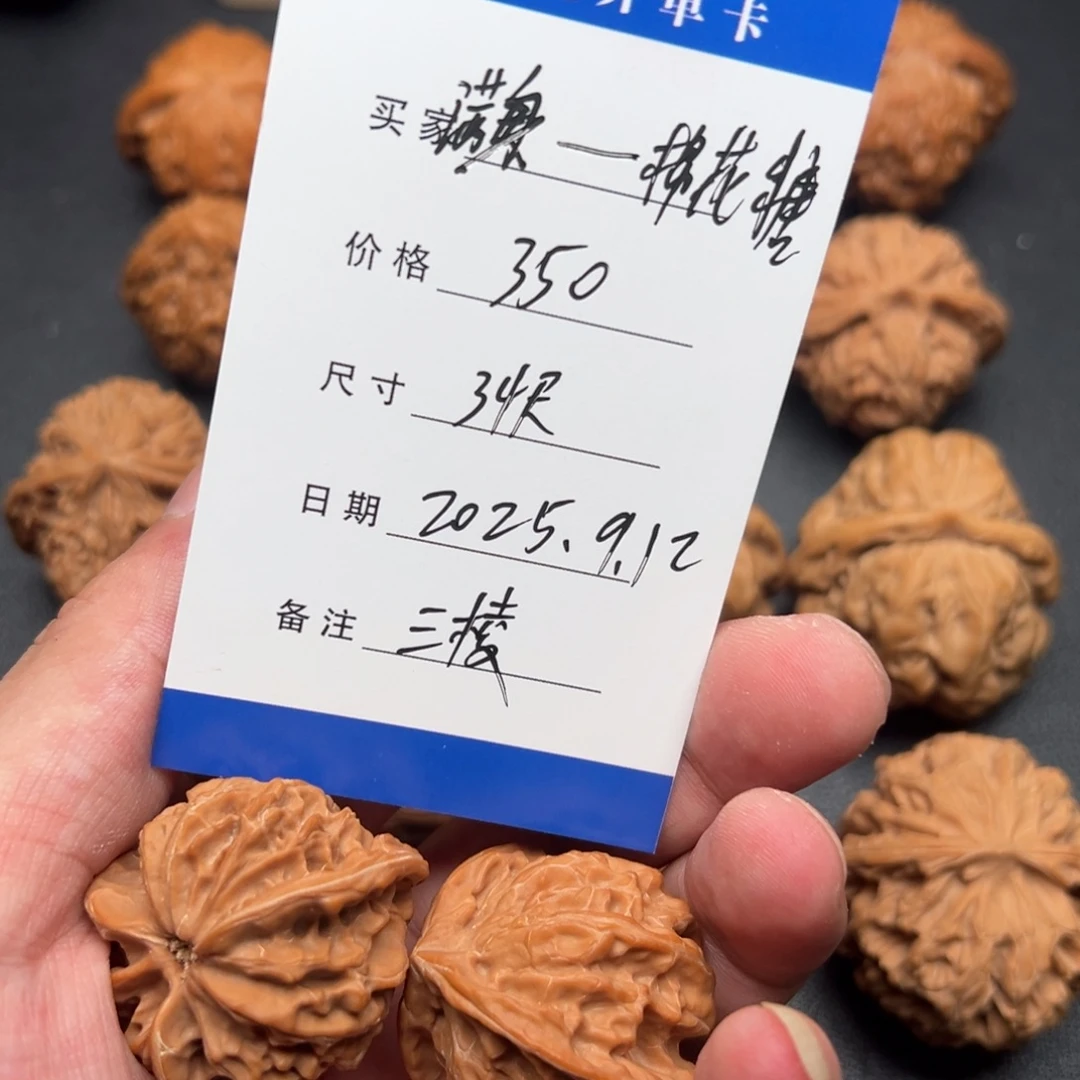 单卡
买家 一棉花糖
价格 350
尺寸 34尺
日期 2025.9.12
备注 三棱